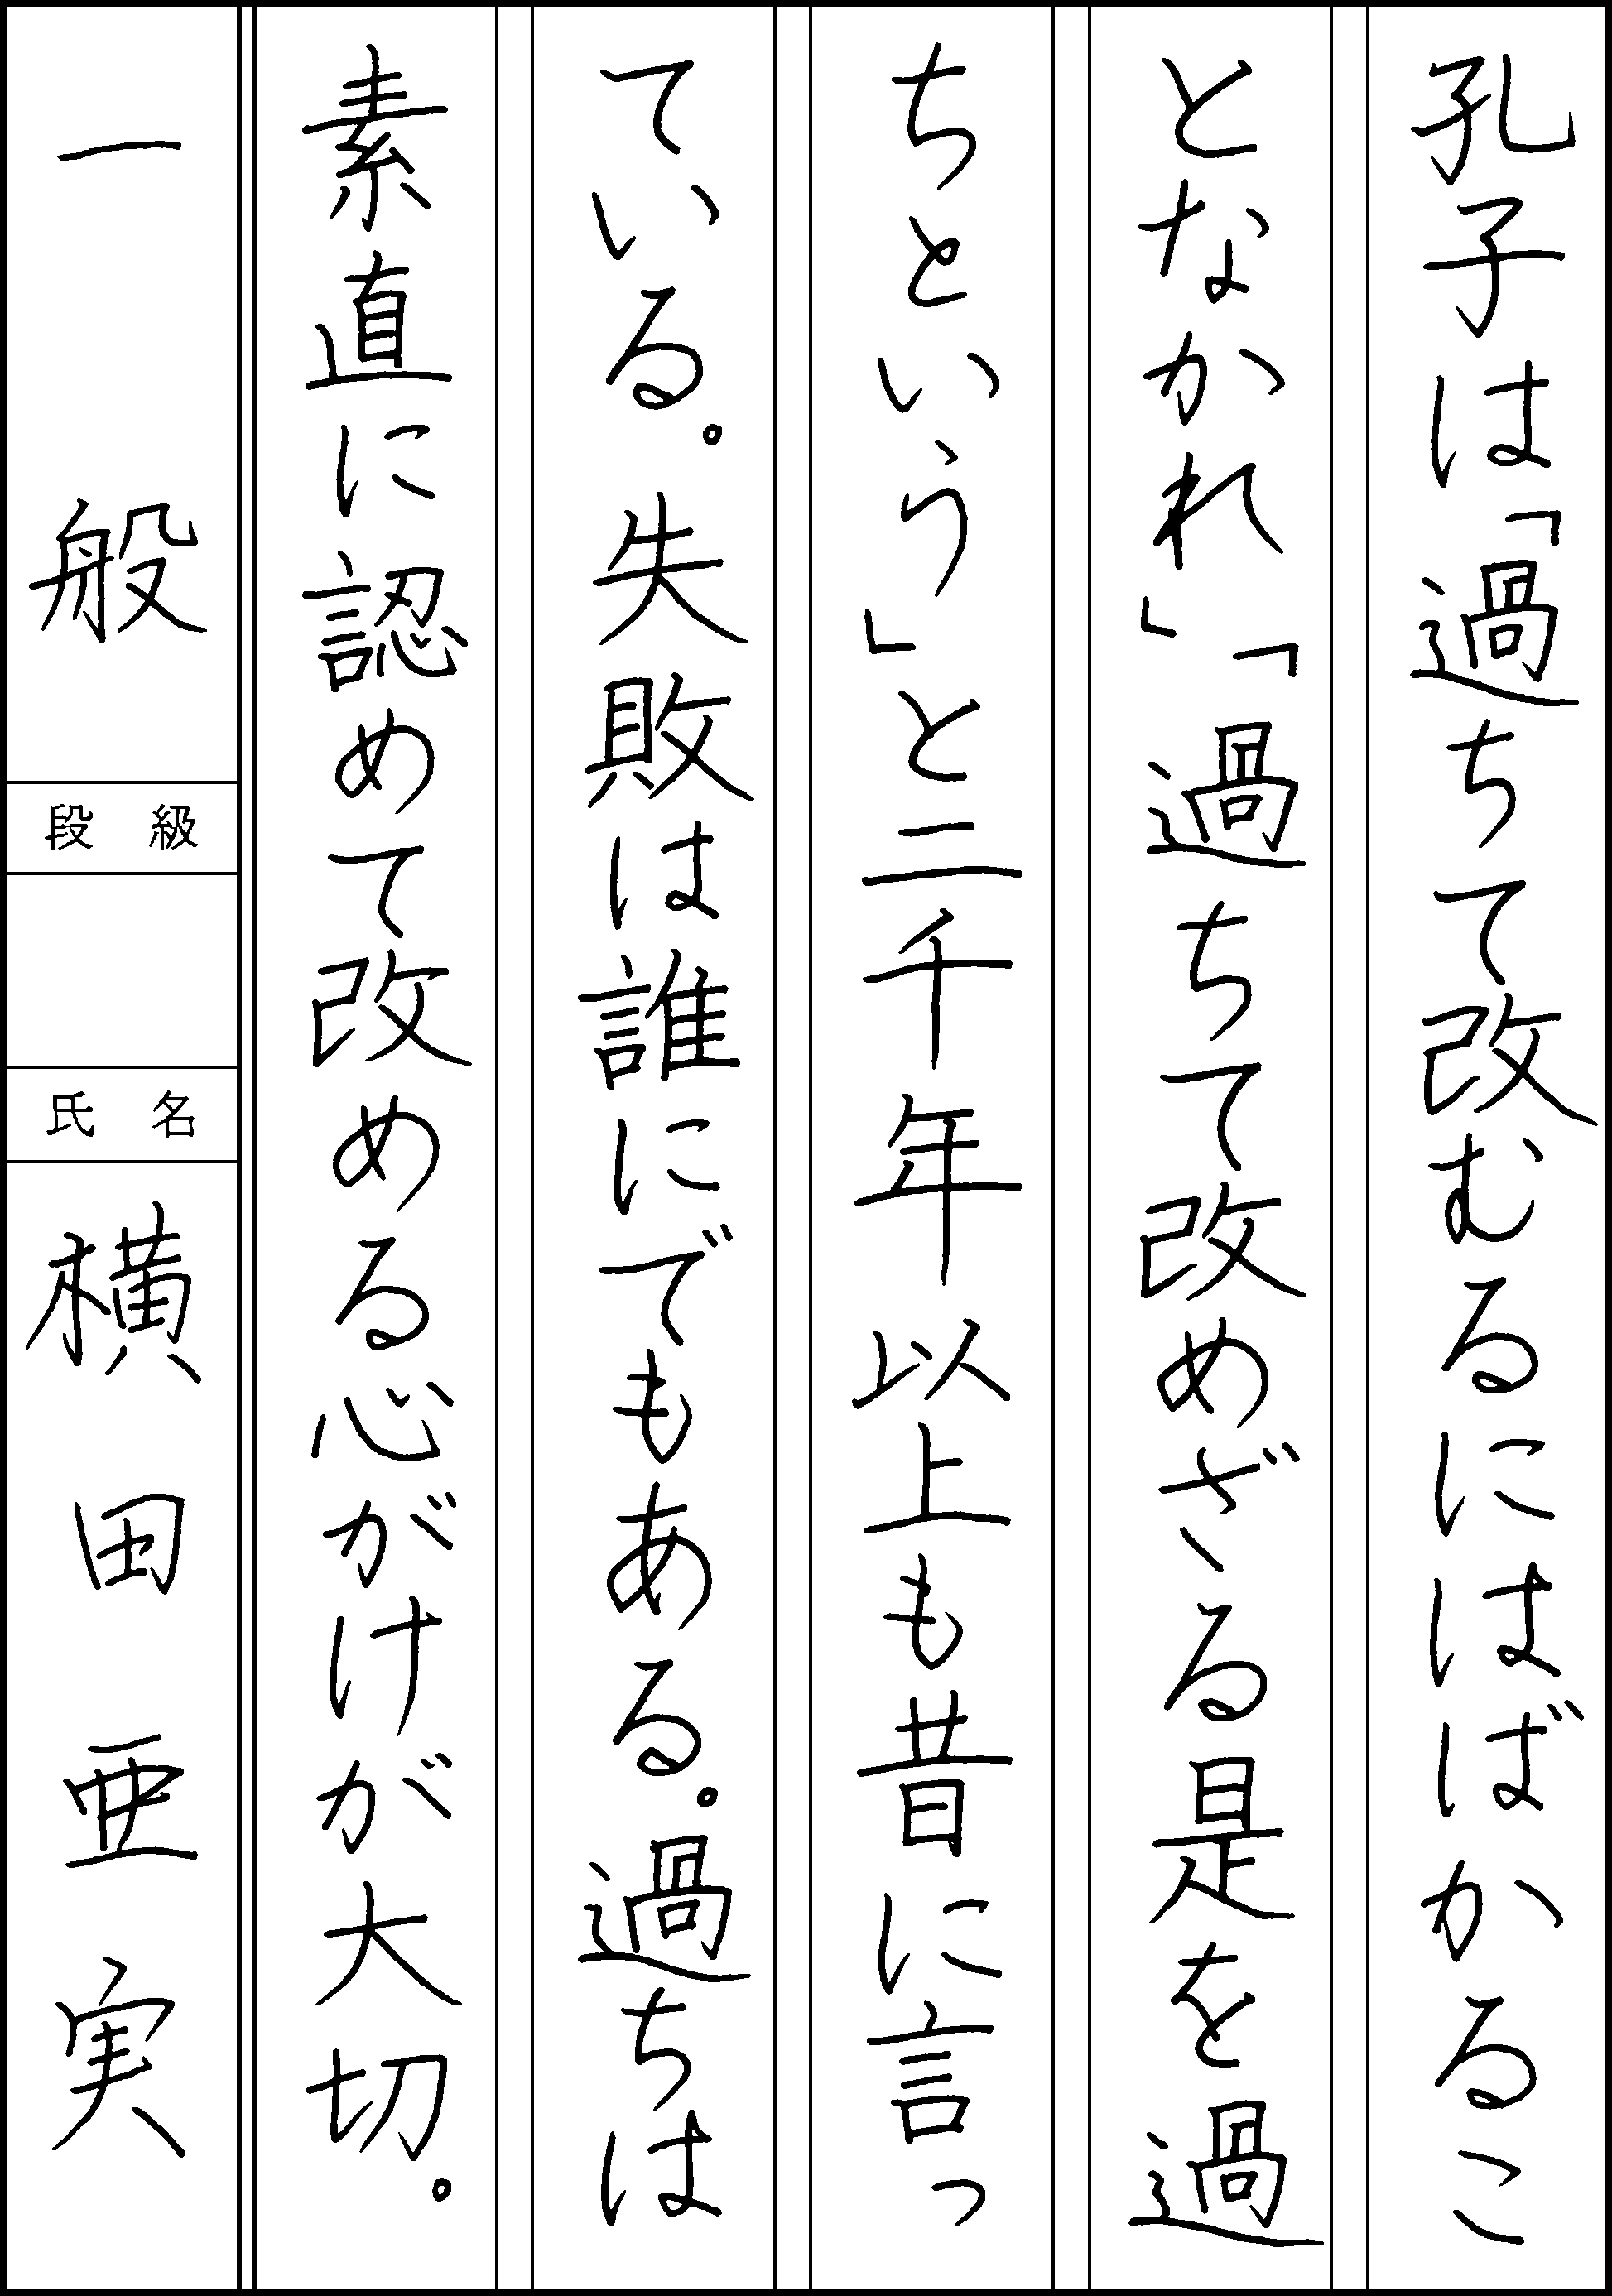 孔子は「過ちて改むるにはばかるこ
となかれ」「過ちて改めざる是を過
ちという」と二千年以上も昔に言っ
ている。失敗は誰にでもある。過ちは
素直に認めて改める心がけが大切。
一般
段級
氏名
横田亜実